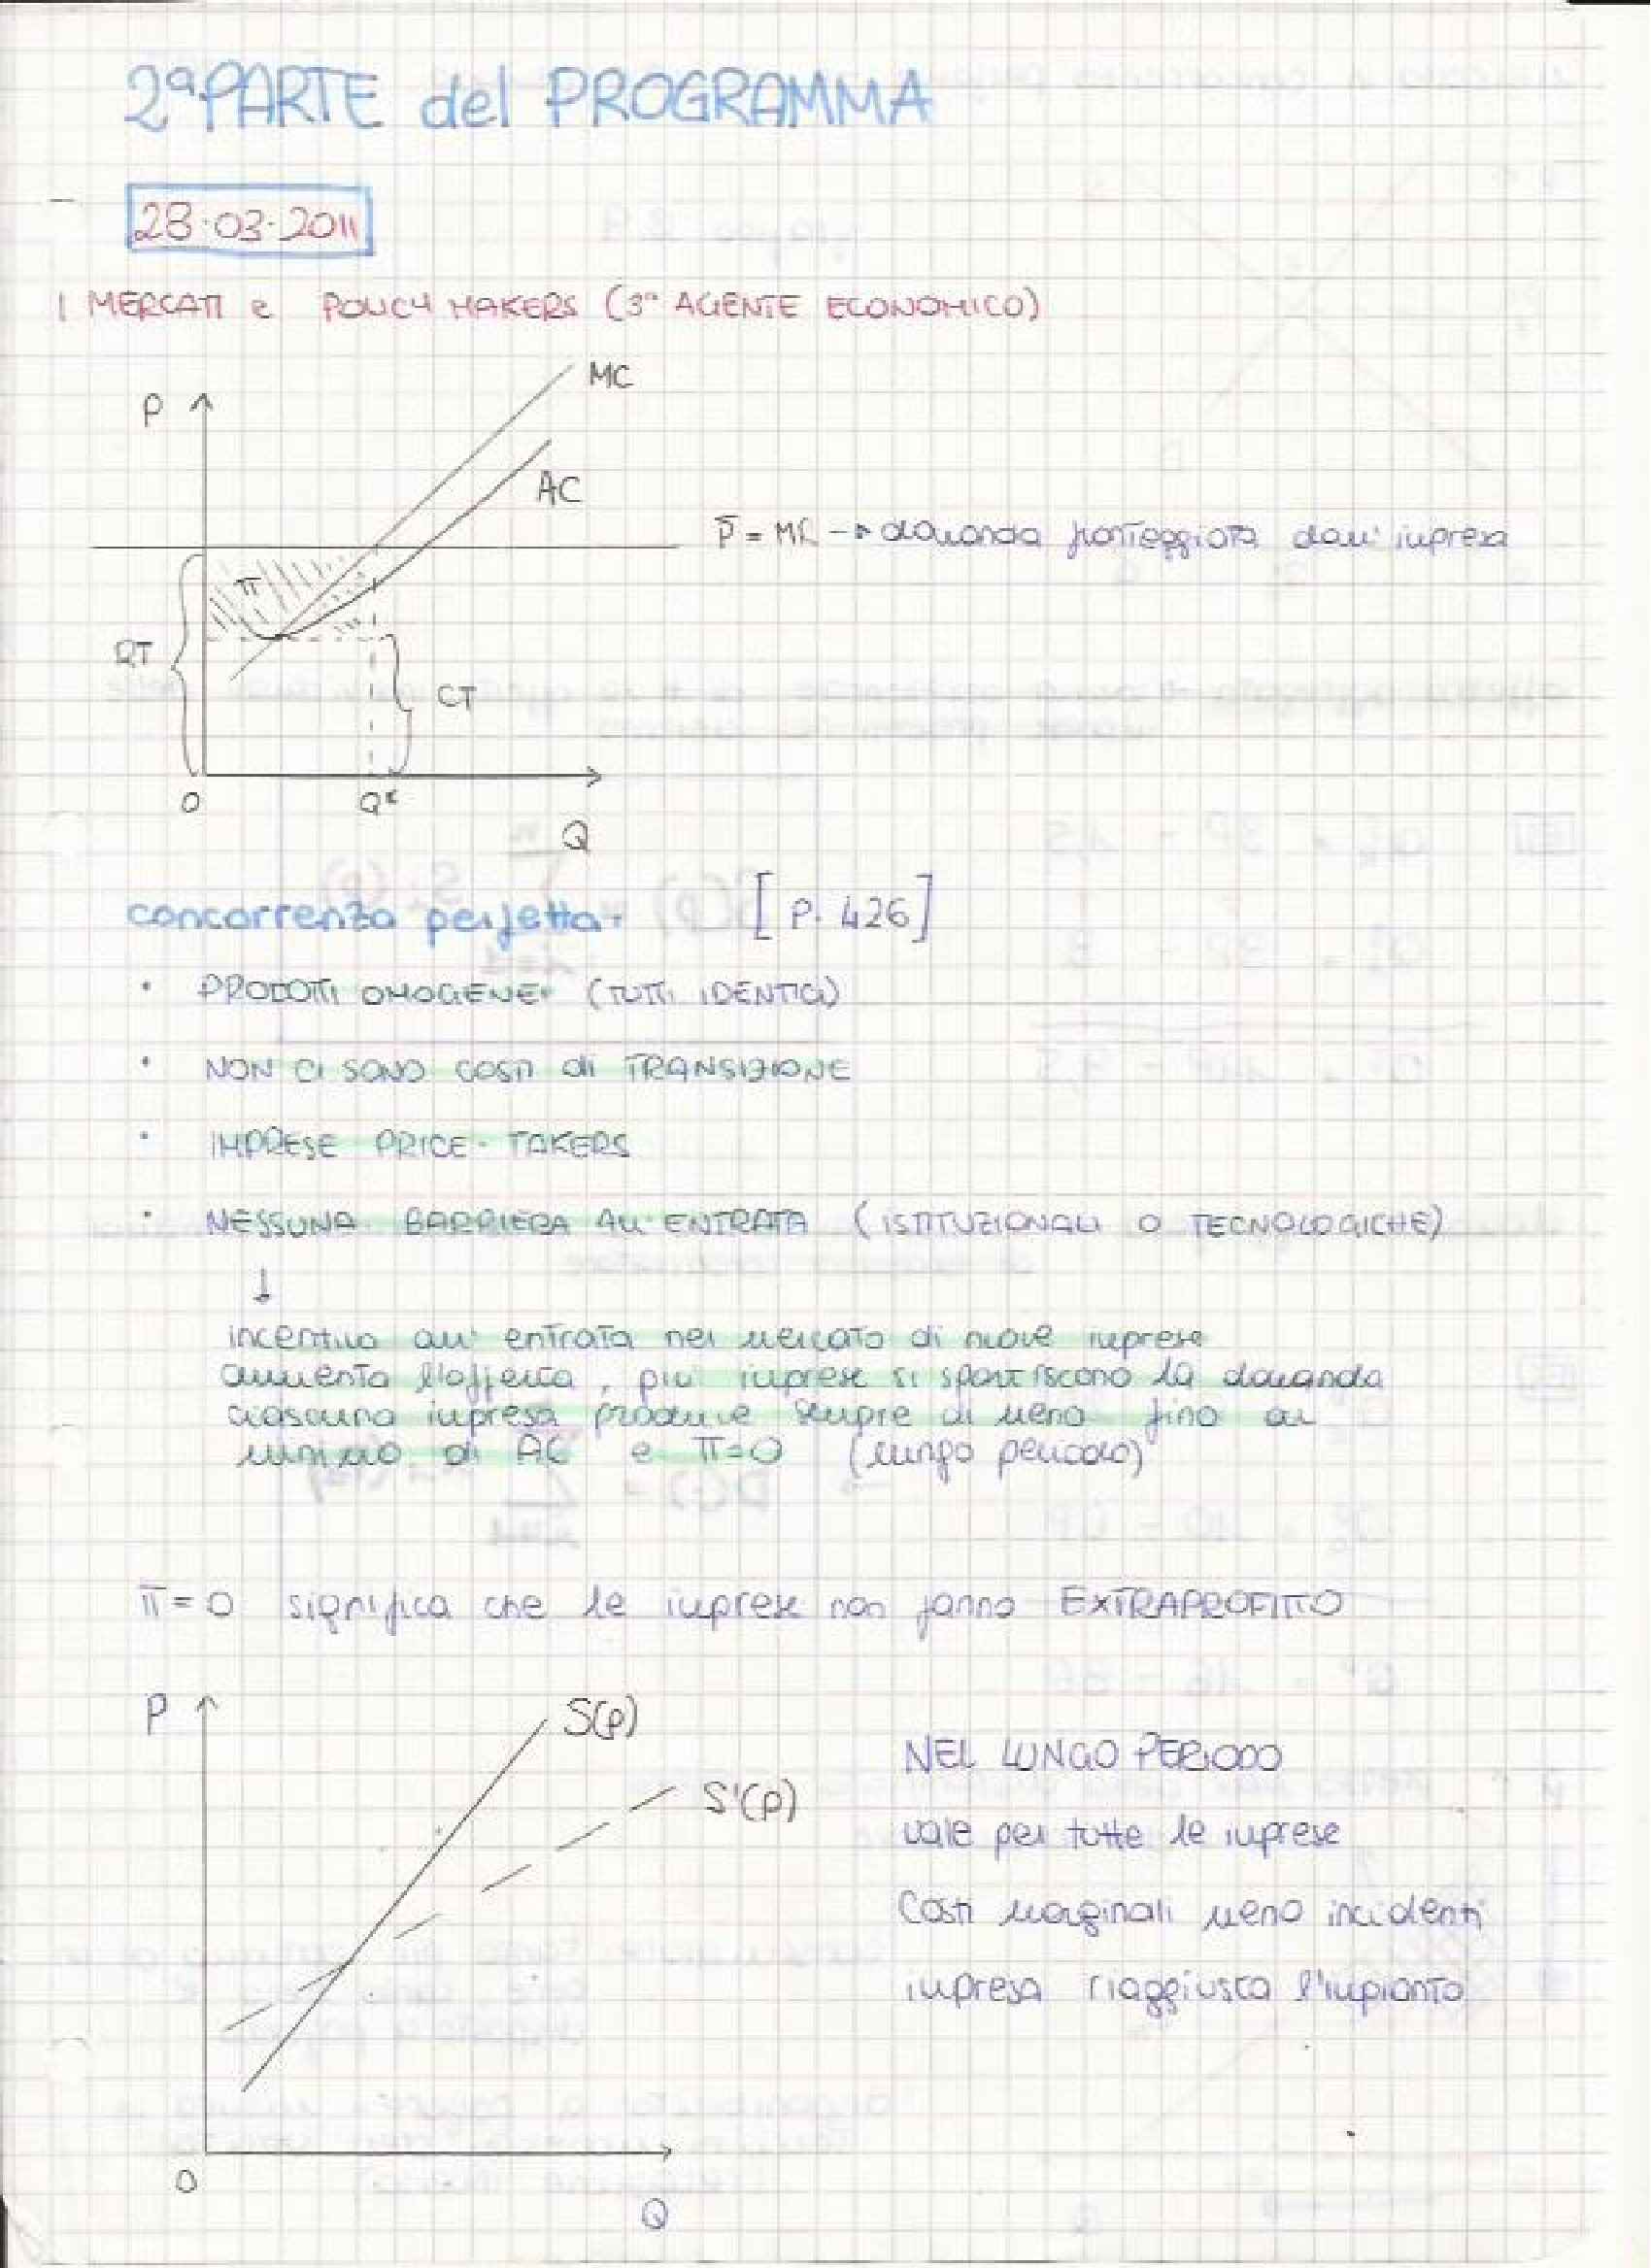 2ª PARTE del PROGRAMMA
28·03·2011
I MERCATI e POLICY MAKERS (3° AGENTE ECONOMICO)
MC
P
AC
P̄ = MC → domanda fronteggiata dall'impresa
π
RT
CT
O Q*
Q
concorrenza perfetta: [P. 426]
• PRODOTTI OMOGENEI (TUTTI IDENTICI)
• NON CI SONO COSTI di TRANSIZIONE
• IMPRESE PRICE-TAKERS
• NESSUNA BARRIERA ALL'ENTRATA (ISTITUZIONALI O TECNOLOGICHE)
↓
incentivo all'entrata nel mercato di nuove imprese
aumenta l'offerta, più imprese si spartiscono la domanda
ciascuna impresa produce sempre di meno fino al
minimo di AC e π=0 (lungo periodo)
π=0 significa che le imprese non fanno EXTRAPROFITTO
P
S(p)
S'(p)
NEL LUNGO PERIODO
vale per tutte le imprese
Costi marginali meno incidenti
impresa riaggiusta l'impianto
O
Q